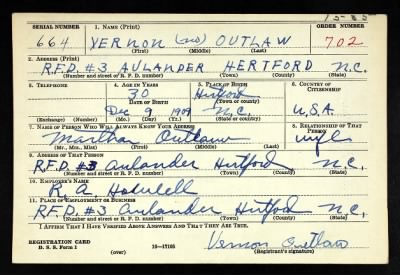 SERIAL NUMBER 1. NAME (Print) ORDER NUMBER
664 VERNON (no) OUTLAW 702
(First) (Middle) (Last)
2. ADDRESS (Print)
R.F.D. #3 AULANDER HERTFORD N.C.
(Number and street or R. F. D. number) (Town) (County) (State)
3. TELEPHONE 4. AGE IN YEARS 5. PLACE OF BIRTH 6. COUNTRY OF CITIZENSHIP
30 Hertford
DATE OF BIRTH (Town or county)
Dec 9 1909 N.C. U.S.A.
(Exchange) (Number) (Mo.) (Day) (Yr.) (State or country)
7. NAME OF PERSON WHO WILL ALWAYS KNOW YOUR ADDRESS 8. RELATIONSHIP OF THAT PERSON
Martha Outlaw wife
(Mr., Mrs., Miss) (First) (Middle) (Last)
9. ADDRESS OF THAT PERSON
R.F.D. #3 Aulander Hertford N.C.
(Number and street or R. F. D. number) (Town) (County) (State)
10. EMPLOYER'S NAME
R. A.
11. PLACE OF EMPLOYMENT OR BUSINESS
R.F.D. #3 Aulander Hertford N.C.
(Number and street or R. F. D. number) (Town) (County) (State)
I AFFIRM THAT I HAVE VERIFIED ABOVE ANSWERS AND THAT THEY ARE TRUE.
REGISTRATION CARD
D. S. S. Form 1 (over) 16-17105 Vernon Outlaw
(Registrant's signature)